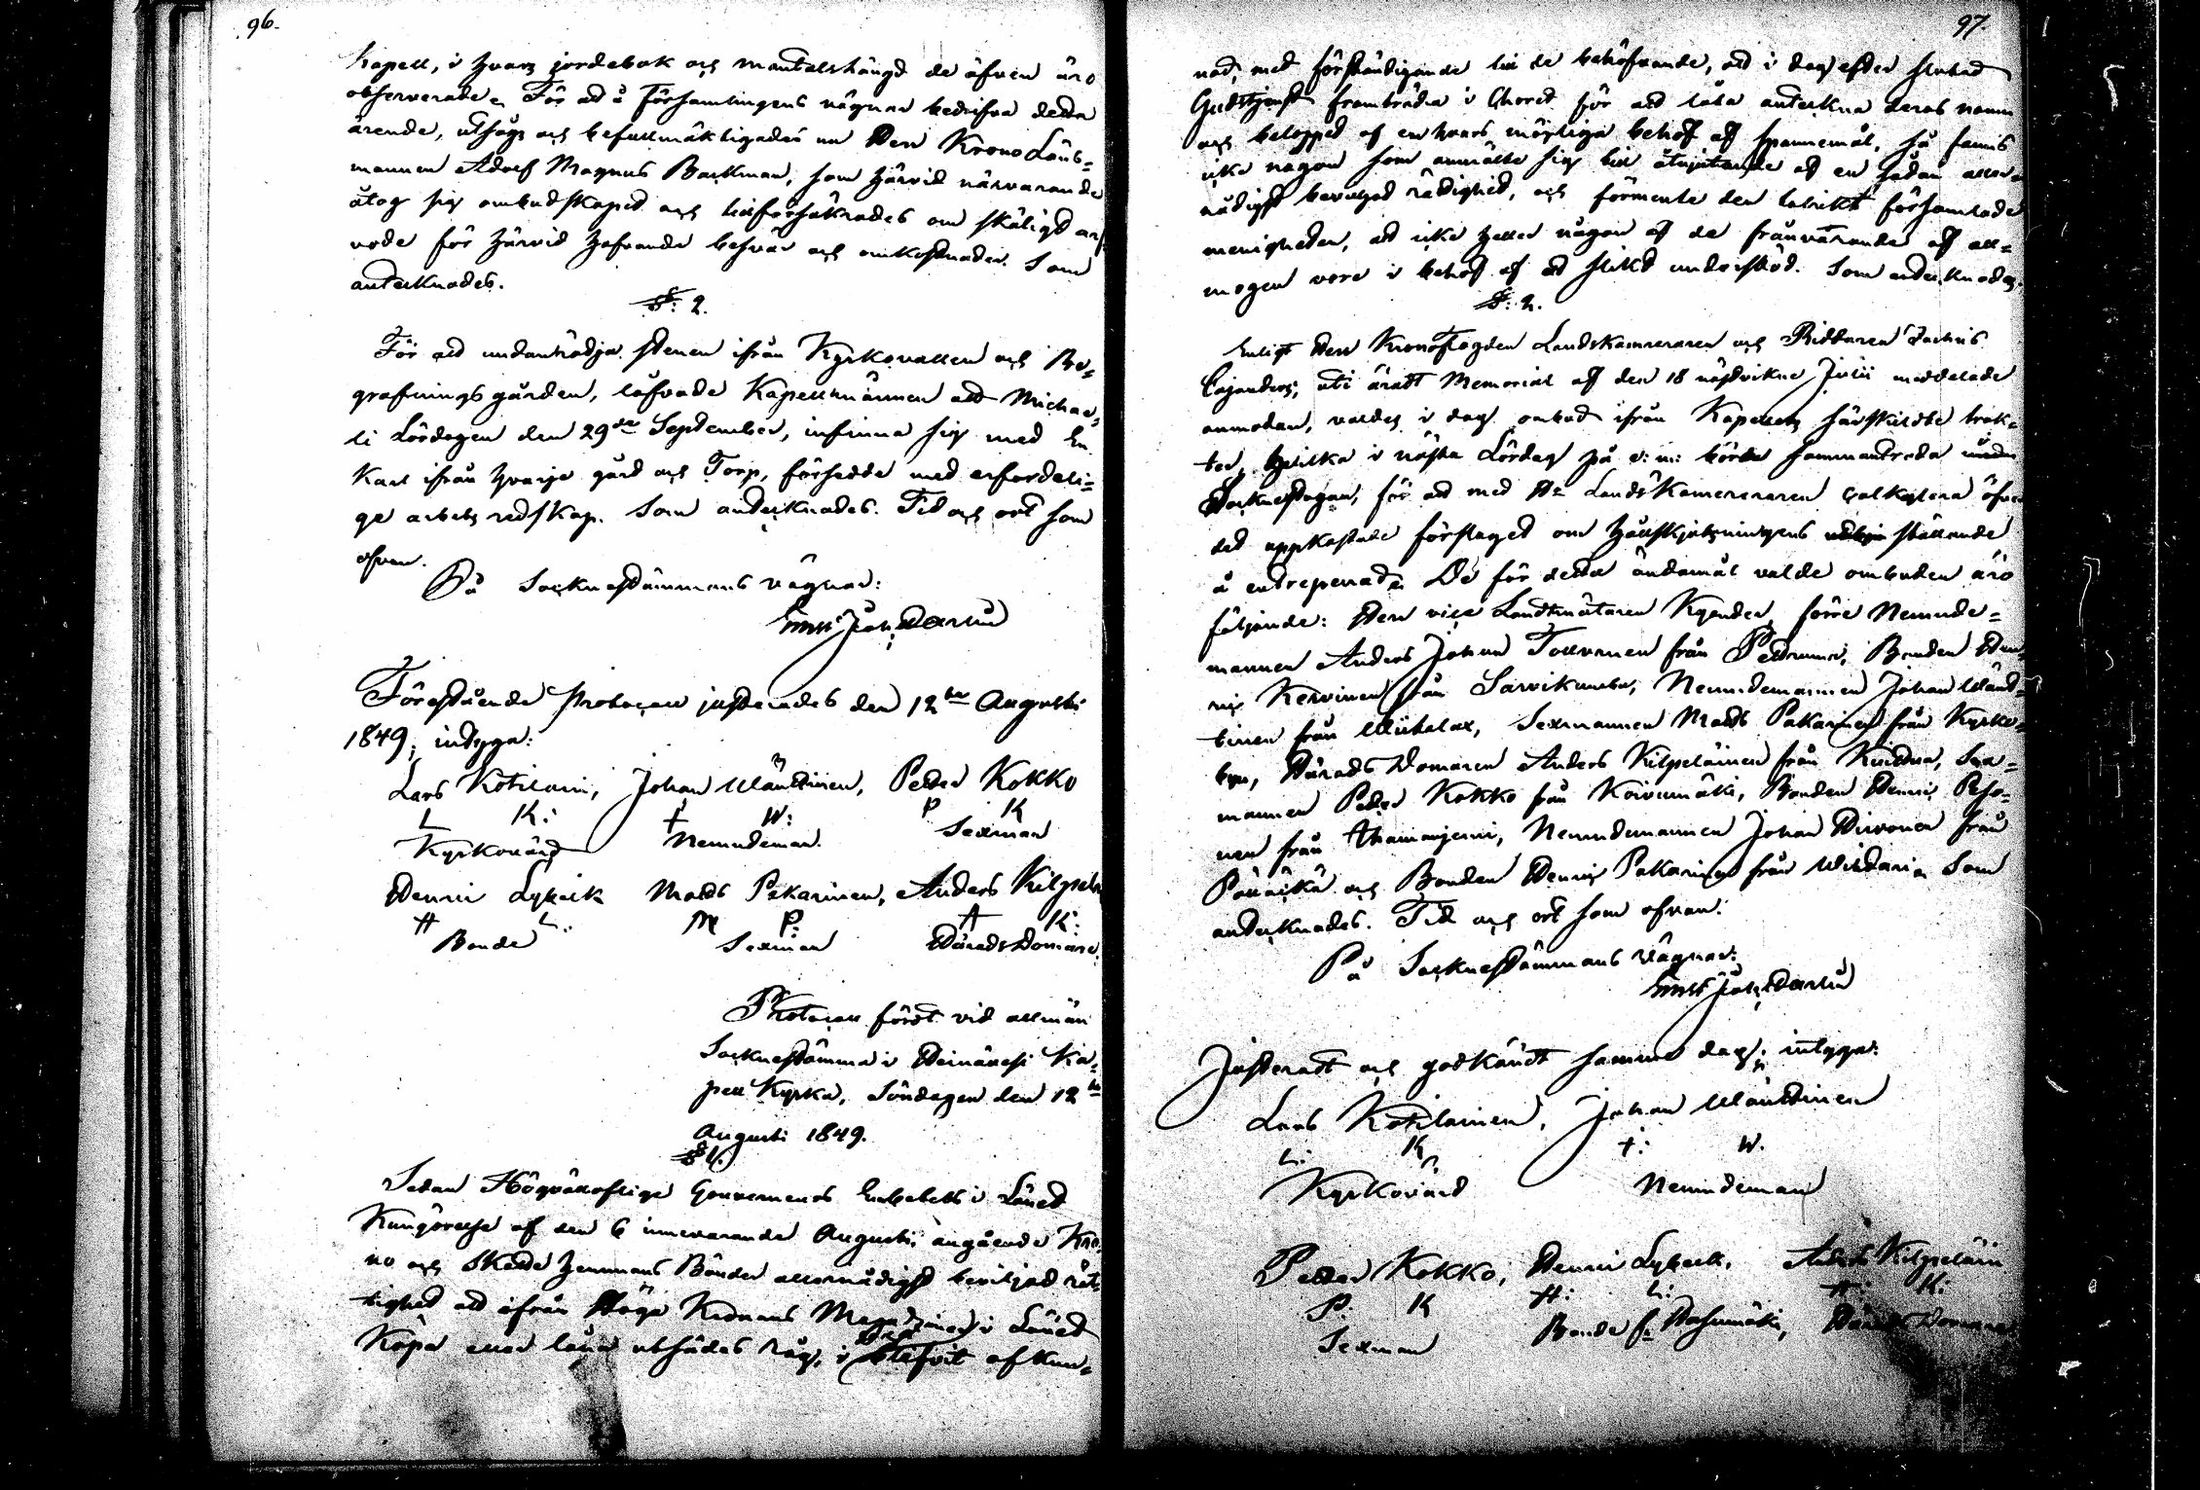 96.
Kapell, i hvars jordebok och mantalslängd de äfven äro
observerade. För att å Församlingens vägnar bedrifva detta
ärende, utsågs och befullmäktigades nu Herr Krono Läns-
mannen Adolf Magnus Backman, som härvid närvarande
åtog sig ombudskapet och tillförsäkrades om skäligt arf-
vode för härvid hafvande besvär och omkostnader. Som
antecknades.
§: 2.
För att undanrödja stenen ifrån Kyrkovallen och Be-
grafningsgården, lofvade Kapellmännen att Michae-
li Lördagen den 29de September, infinna sig med En
Karl ifrån hvarje gård och Torp, försedde med erforderli-
ge arbets redskap. Som antecknades. Tid och ort som
ofvan.
På Socknestämmans vägnar:
Ernst Joh:
Förestående Protocoll justerades den 12te Augusti
1849; intyga:
Lars Kotilain, Johan Mänttinen, Petter Kokko
L K: I W: P K
Kyrkovärd Nemndeman. Sexman
Henric Lyheik Matts Pakarinen, Anders Kilpel
H L: M P: A K:
Bonde Sexman HäradsDomare.
Protocoll fördt vid allmän
Socknestämma i Heinävesi Ka-
pell Kyrka, Söndagen den 12te
Augusti 1849.
§ 1.
Sedan Högvälloflige Gouvernements Embetets i Länet
Kungörelse af den 6 innevarande Augusti, angående Kro-
no och Skatte hemmans Bönder allernådigst beviljad rät-
tighet att ifrån Höga Kronans Magaziner i Länet
Köpa eller låna utsädes råg, i blifvit afkun-
97.
nad, med förständigande till de behöfvande, att i dag efter slutad
Gudstjenst framträda i Choret för att låta anteckna deras namn
och beloppet af en hvars möjliga behof af spannemål, så fanns
icke någon som anmälte sig till åtnjutande af en sådan aller-
nådigst beviljad rättighet, och förmente den talrikt församlade
menigheten, att icke heller någon af de frånvarande af all-
mogen vore i behof af ett slikt understöd. Som antecknades.
§: 2.
Enligt Herr Kronofogden Landskamreraren och Riddaren Zachris
Cajanders, uti äradt Memorial af den 18 nästvikne Julii meddelade
anmodan, valdes i dag ombud ifrån Kapellets särskildte trak-
ter, hvilka i nästa Lördag på e: m: böra sammanträda
Socknestugan, för att med Hr LandsKamereraren calkylera öfver
det uppkastade förslaget om hållskjutsningens ställande
å entreprenad. De för detta ändamål valde ombuden äro
följande: Herr vice Landtmätaren Kyander, förre Nemnde-
mannen Anders Johan Tolvanen från Petrumä, Bonden Hen-
ric Kervinen från Sarvikumbu, Nemndemannen Johan Mänt-
tinen från Wihtalax, Sexmannen Matts Pakarinen från Kyrko-
byn, Härads Domaren Anders Kilpeläinen från Kuittua, Sex-
mannen Petter Kokko från Koivumäki, Bonden Henric Peso-
nen från, Nemndemannen Johan Hirvonen från
och Bonden Henric Pakarinen från Wihtari. Som
antecknades. Tid och ort som ofvan.
På Socknestämmans Vägnar:
Ernst Joh:
Justeradt och godkändt samma dag; intyga:
Lars Kotilainen, Johan Mänttinen
L: K I: W.
Kyrkovärd Nemndeman
Petter Kokko, Henric Lyheik, Anders Kilpeläin
P: K H: L: A: K:
Sexman Bonde fr, Härads Domare